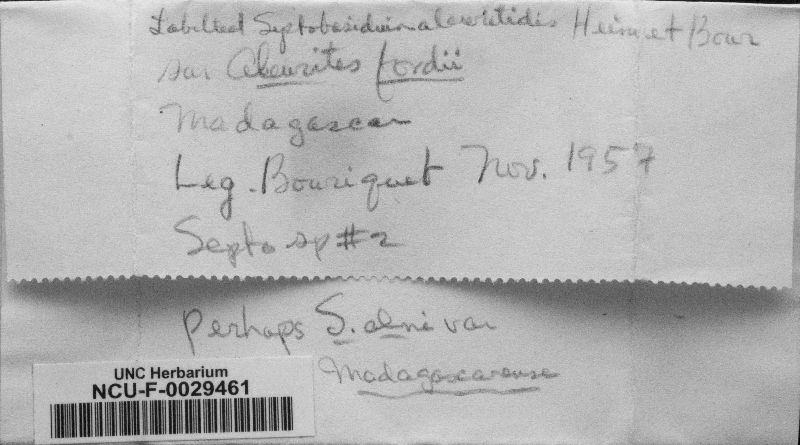 Labelled Septobasidium aleuritidis Heim et Bour
sur Aleurites fordii
Madagascar
Leg. Bouriquet Nov. 1957
Septo sp #2
Perhaps S. alni var
Madagascarense
UNC Herbarium
NCU-F-0029461